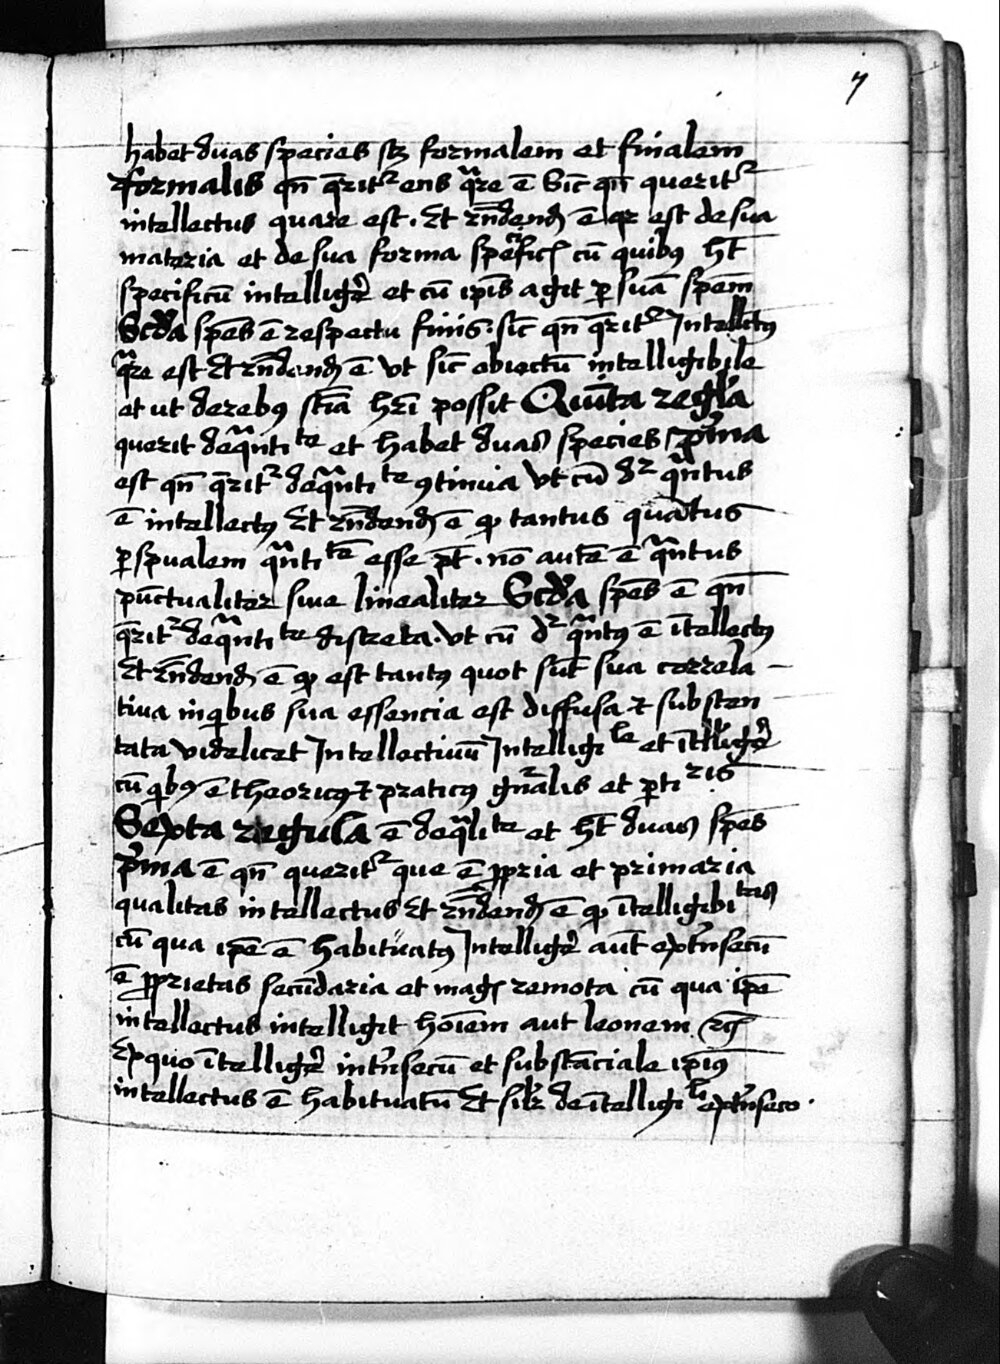 7
habet duas species scꝫ formalem et finalem
formalis qn̄ q̄rit᷑ ens q̄re ē Sic̄ qn̄ querit᷑
intellectus quare est. Et rn̄dend̄ ē qꝛ est de sua
materia et de sua forma specific̄ cū quibꝰ hꝫ
specificū intelligē et cū ip̄is agit ꝑ suā spēm
Scd̄a spēs ē respectu finis. sic̄ qn̄ q̄rit᷑ Intellectꝰ
q̄re est Et rn̄dend̄ ē vt sic̄ obiectū intelligibile
et ut de rebꝰ scīa hr̄i possit Quīta regl̄a
querit de q̄ntite et habet duas species p̄ma
est qn̄ q̄rit᷑ de q̄ntite ꝯtinua vt cū dr̄ q̄ntus
ē intellectꝰ Et rn̄dend̄ ē ꝙ tantus quātus
ꝑ spūalem q̄ntitē esse pt̄. nō autē ē q̄ntus
pūctualiter siue linealiter Scd̄a spēs ē qn̄
q̄rit᷑ de q̄ntite discreta. vt cū dr̄ q̄ntꝰ ē ītellectꝰ
Et rn̄dend̄ ē ꝙ est tantꝰ quot sūt sua correla-
tiua in qibus sua essencia est diffusa ⁊ substen
tata videlicet Intellectiuū Intelligile et ītelligē
cū qibꝰ ē theoricꝰ ⁊ praticꝰ gn̄alis et ꝑtiris
Sexta regula ē de q̄lite et hꝫ duas spēs
p̄ma ē qn̄ querit᷑ que ē ꝓpria et primaria
qualitas intellectus Et rn̄dend̄ ē ꝙ ītelligibitas
cū qua ip̄e ē habituatꝰ Intelligē aut̄ extn̄secū
ē ꝓprietas secūdaria et magꝭ remota cū qua ip̄e
intellectus intelligit hoīem aut leonem ⁊c̄
Ex quo ītelligē int̄nsecū et substāciale ip̄iꝰ
intellectus ē habituatū Et silr̄ de ītelligili ext̄nseco.